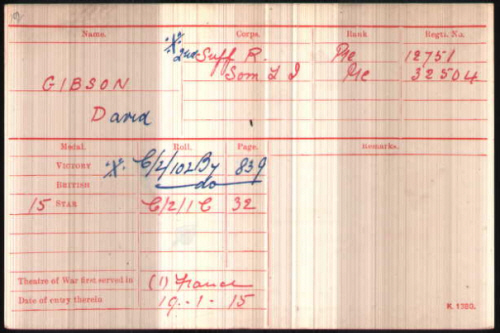 Name. Corps. Rank Regtl. No.
X 2nd Suff R. Pte 12751
GIBSON Som L I Pte 32504
David
Medal. Roll. Page. Remarks.
VICTORY X. C/2/102B7 839
BRITISH do
15 STAR C/2/1 C 32
Theatre of War first served in (1) France
Date of entry therein 19-1-15
K. 1380.